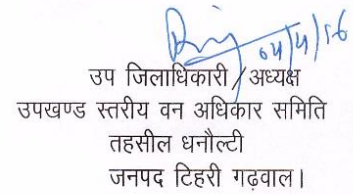 04/4/16
उप जिलाधिकारी/अध्यक्ष
उपखण्ड स्तरीय वन अधिकार समिति
तहसील धनौल्टी
जनपद टिहरी गढ़वाल।